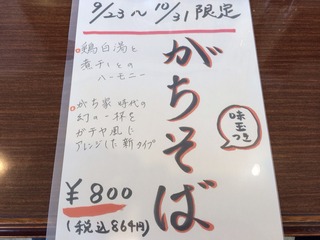 9/23〜10/31限定
がちそば
味玉
つき
鶏白湯と
煮干しとの
ハーモニー
がち家時代の
幻の一杯を
ガチヤ風に
アレンジした新タイプ
¥800
(税込864円)